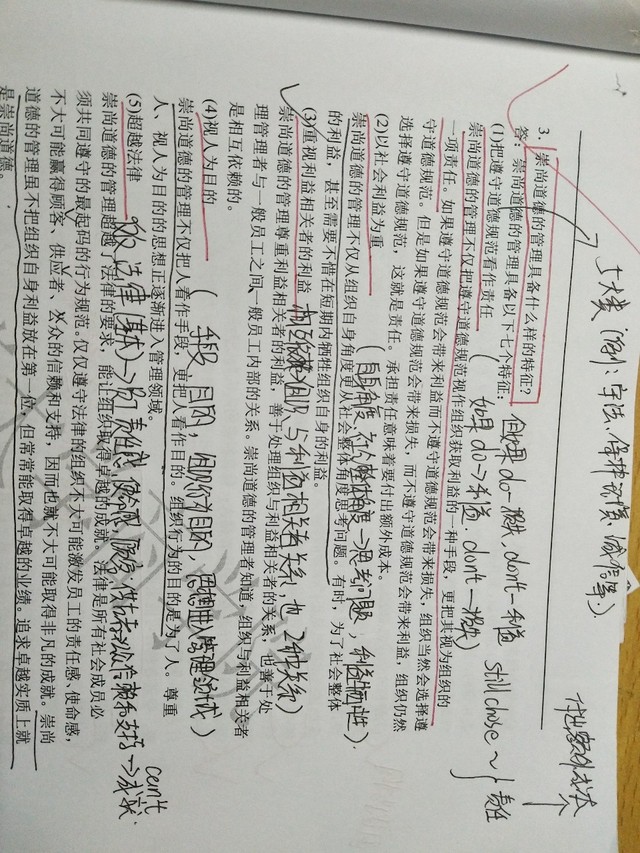 5大类(例:守法、保护环境、减排等)
付出额外成本
3. 崇尚道德的管理具备什么样的特征?
答:崇尚道德的管理具备以下七个特征:
(1)把遵守道德规范看作责任
如果do→利益,don't→损失
但如果do-损失,don't-利益
still
责任
崇尚道德的管理不仅把遵守道德规范视作组织获取利益的一种手段,更把其视为组织的
一项责任。如果遵守道德规范会带来利益而不遵守道德规范会带来损失,组织当然会选择遵
守道德规范。但是如果遵守道德规范会带来损失,而不遵守道德规范会带来利益,组织仍然
选择遵守道德规范,这就是责任。承担责任意味着要付出额外成本。
(2)以社会利益为重
(自身角度,社会整体角度→思考问题,利益牺牲)
崇尚道德的管理不仅从组织自身角度更从社会整体角度思考问题。有时,为了社会整体
的利益,甚至需要不惜在短期内牺牲组织自身的利益。
(3)重视利益相关者的利益
组织与利益相关者关系,也2种关系)
崇尚道德的管理尊重利益相关者的利益,善于处理组织与利益相关者的关系,也善于处
理管理者与一般员工之间、一般员工内部的关系。崇尚道德的管理者知道,组织与利益相关者
是相互依赖的。
(4)视人为目的
(手段,目的,组织行为目的,思想进入管理领域)
崇尚道德的管理不仅把人看作手段,更把人看作目的。组织行为的目的是为了人。尊重
人、视人为目的的思想正逐渐进入管理领域。
(5)超越法律
法律(基本)→责任感,使命感,顾客、供应者、公众信赖和支持→成就
can't
崇尚道德的管理超越了法律的要求,能让组织取得卓越的成就。法律是所有社会成员必
须共同遵守的最起码的行为规范,仅仅遵守法律的组织不大可能激发员工的责任感、使命感,
不大可能赢得顾客、供应者、公众的信赖和支持,因而也就不大可能取得非凡的成就。崇尚
道德的管理虽不把组织自身利益放在第一位,但常常能取得卓越的业绩。追求卓越实质上就
是崇尚道德。